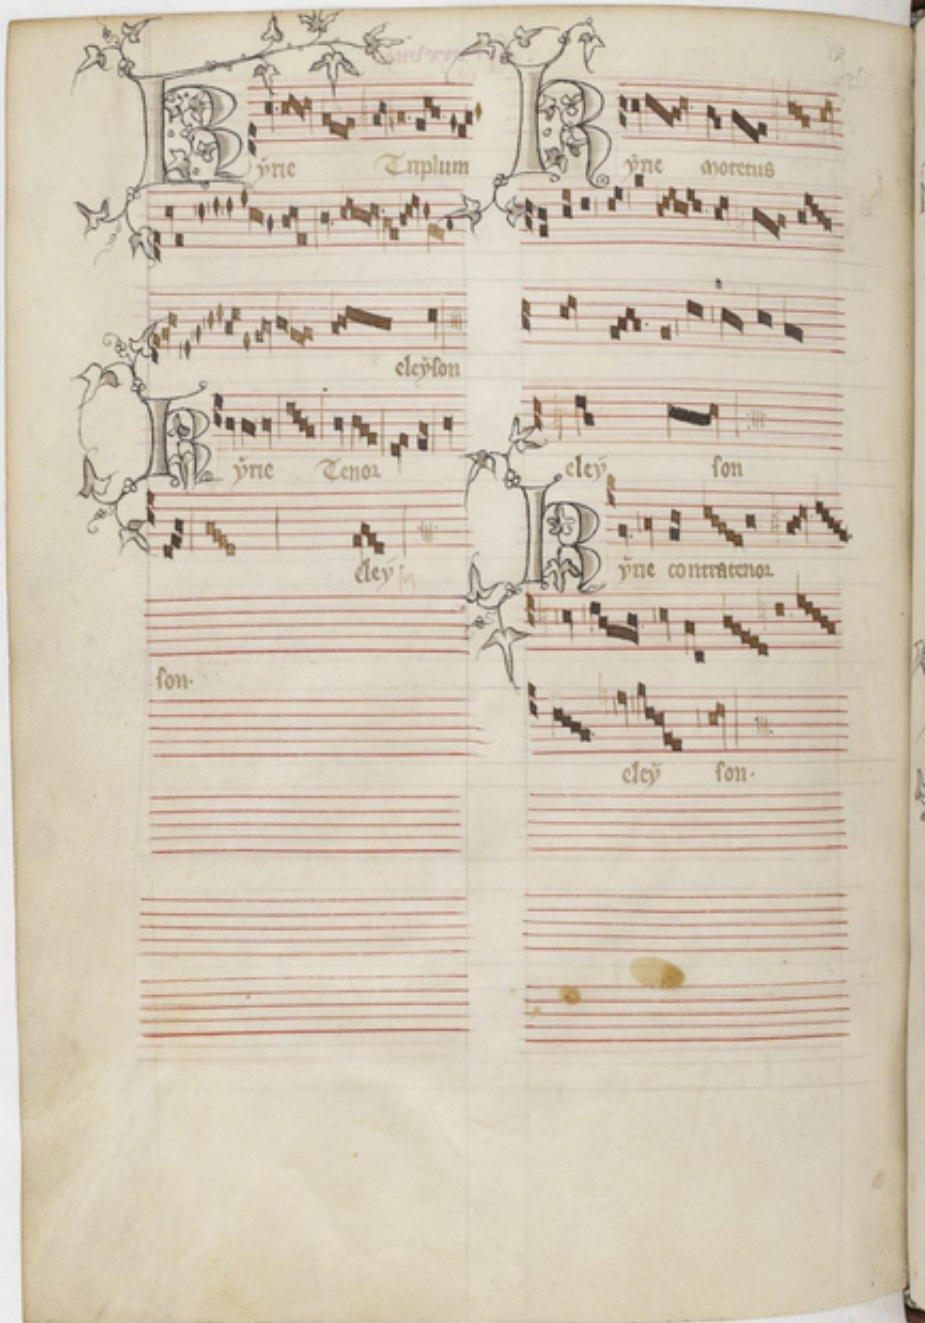 Kẏrie Triplum
eleẏson
Kẏrie Tenor
eleẏ
son.
Kẏrie Motetus
eleẏ son
Kẏrie contratenor
eleẏ son.